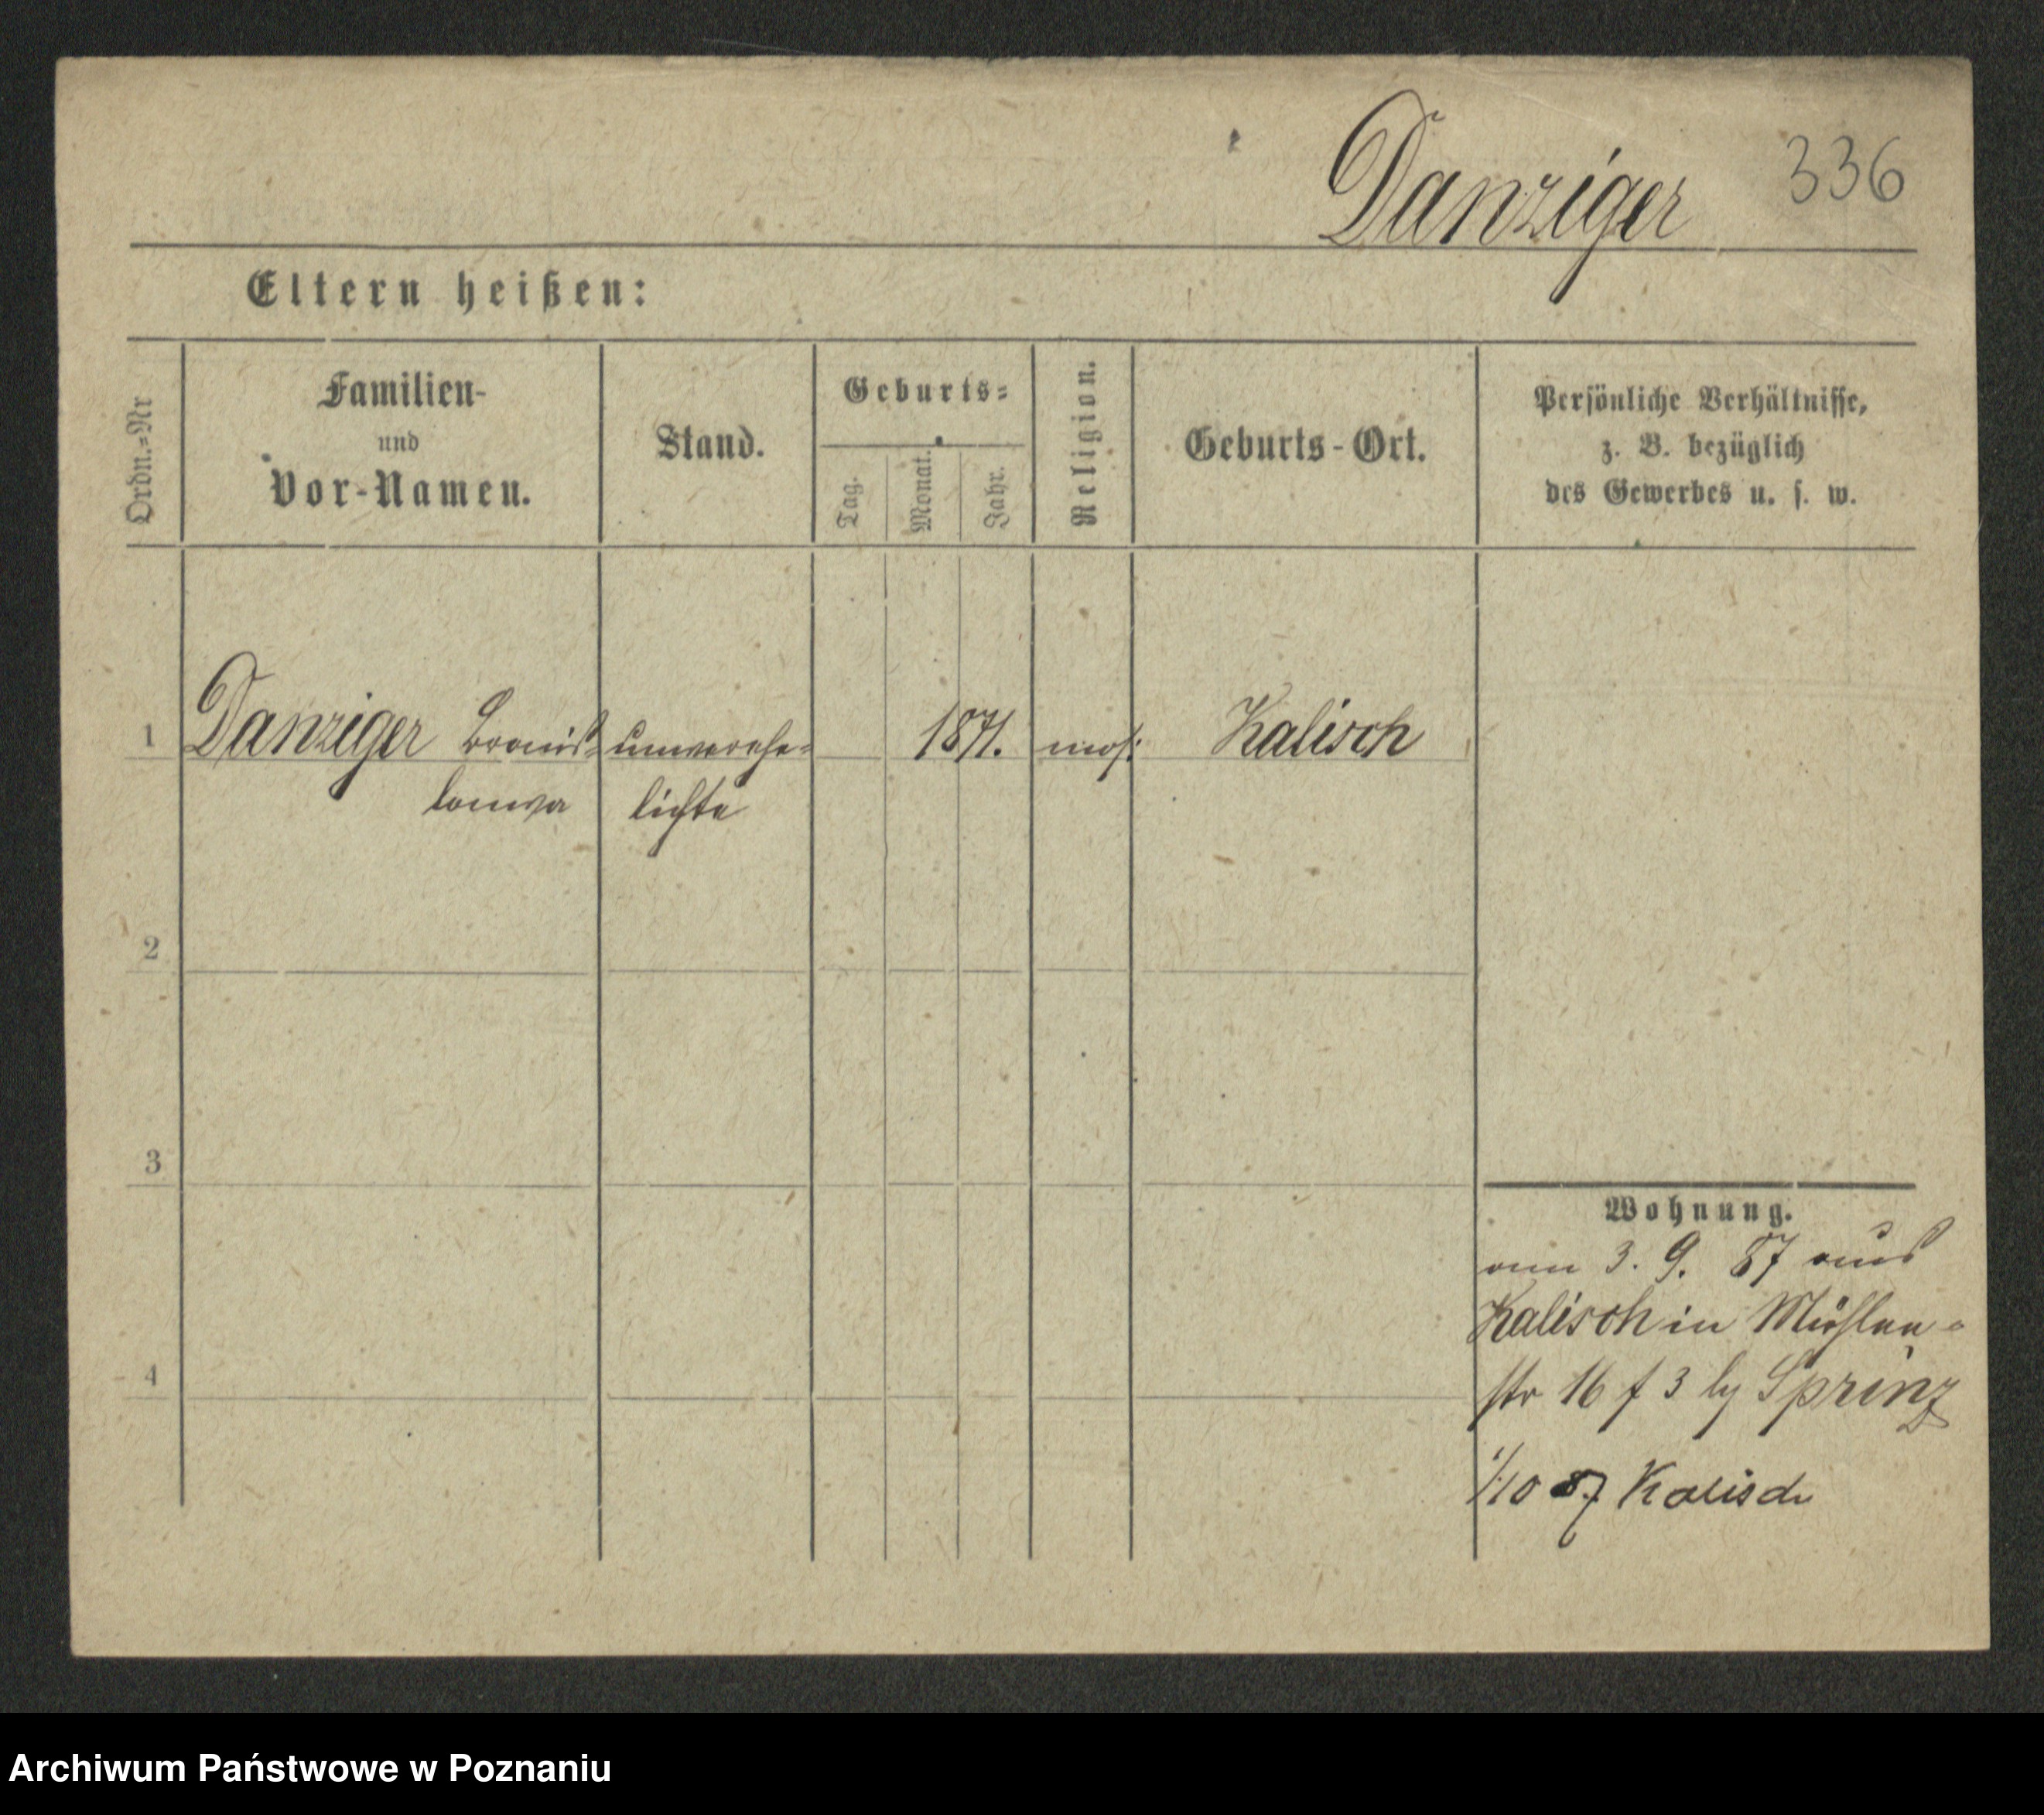 Danziger 336
Eltern heißen:
Ordn.=Nr
Familien-
und
Vor-Namen.
Stand.
Geburts=
Tag.
Monat.
Jahr.
Religion.
Geburts-Ort.
Persönliche Verhältnisse,
z. B. bezüglich
des Gewerbes u. s. w.
1 Danziger Bronis= unverehe= 1871. mos: Kalisch
lawa lichte
2
3
4
Wohnung.
am 3. 9. 87 aus
Kalisch in Mühlen=
str 16 f 3 by Sprinz
1/10 87 Kalisch
Archiwum Państwowe w Poznaniu